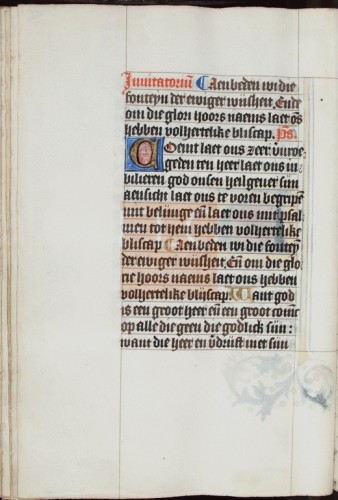 Inuitatoriũ Aenbeden wi die
fonteyn der ewiger wijsheit Ende
om die glori hoors naems laet ōs
hebben volhertelike bliscap. p̄s.
Coemt laet ons zeer v̄uroe
geden ten heer laet ons iu
bilieren god onsen heilgeuer sijn
aensicht laet ons te voren begripē
mit belijnge eñ laet ons mit psal
men tot hem hebben volhertelike
bliscap Aenbeden wi die fonteȳ
der ewiger wijsheit. Eñ om die glo
rie hoors naems laet ons hebben
volhertelike blijscap. Want god
is een groot heer eñ een groot coninc
op alle die geen die godlick sijn:
want die heer en v̄drijft niet sijn